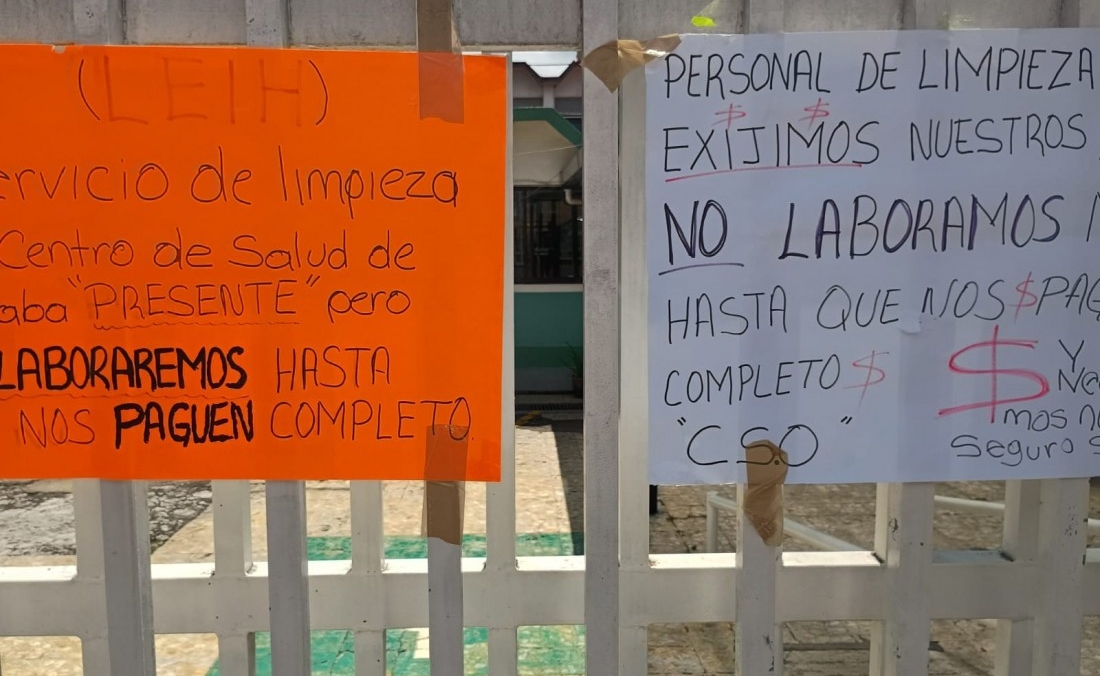 (LEIH)
ervicio de limpieza
Centro de Salud de
aba "PRESENTE" pero
LABORAREMOS HASTA
NOS PAGUEN COMPLETO.
PERSONAL DE LIMPIEZA
EXIJIMOS NUESTROS
NO LABORAMOS
HASTA QUE NOS $PAG
COMPLETO $ $ Y
N@
mos
"CSO" Seguro